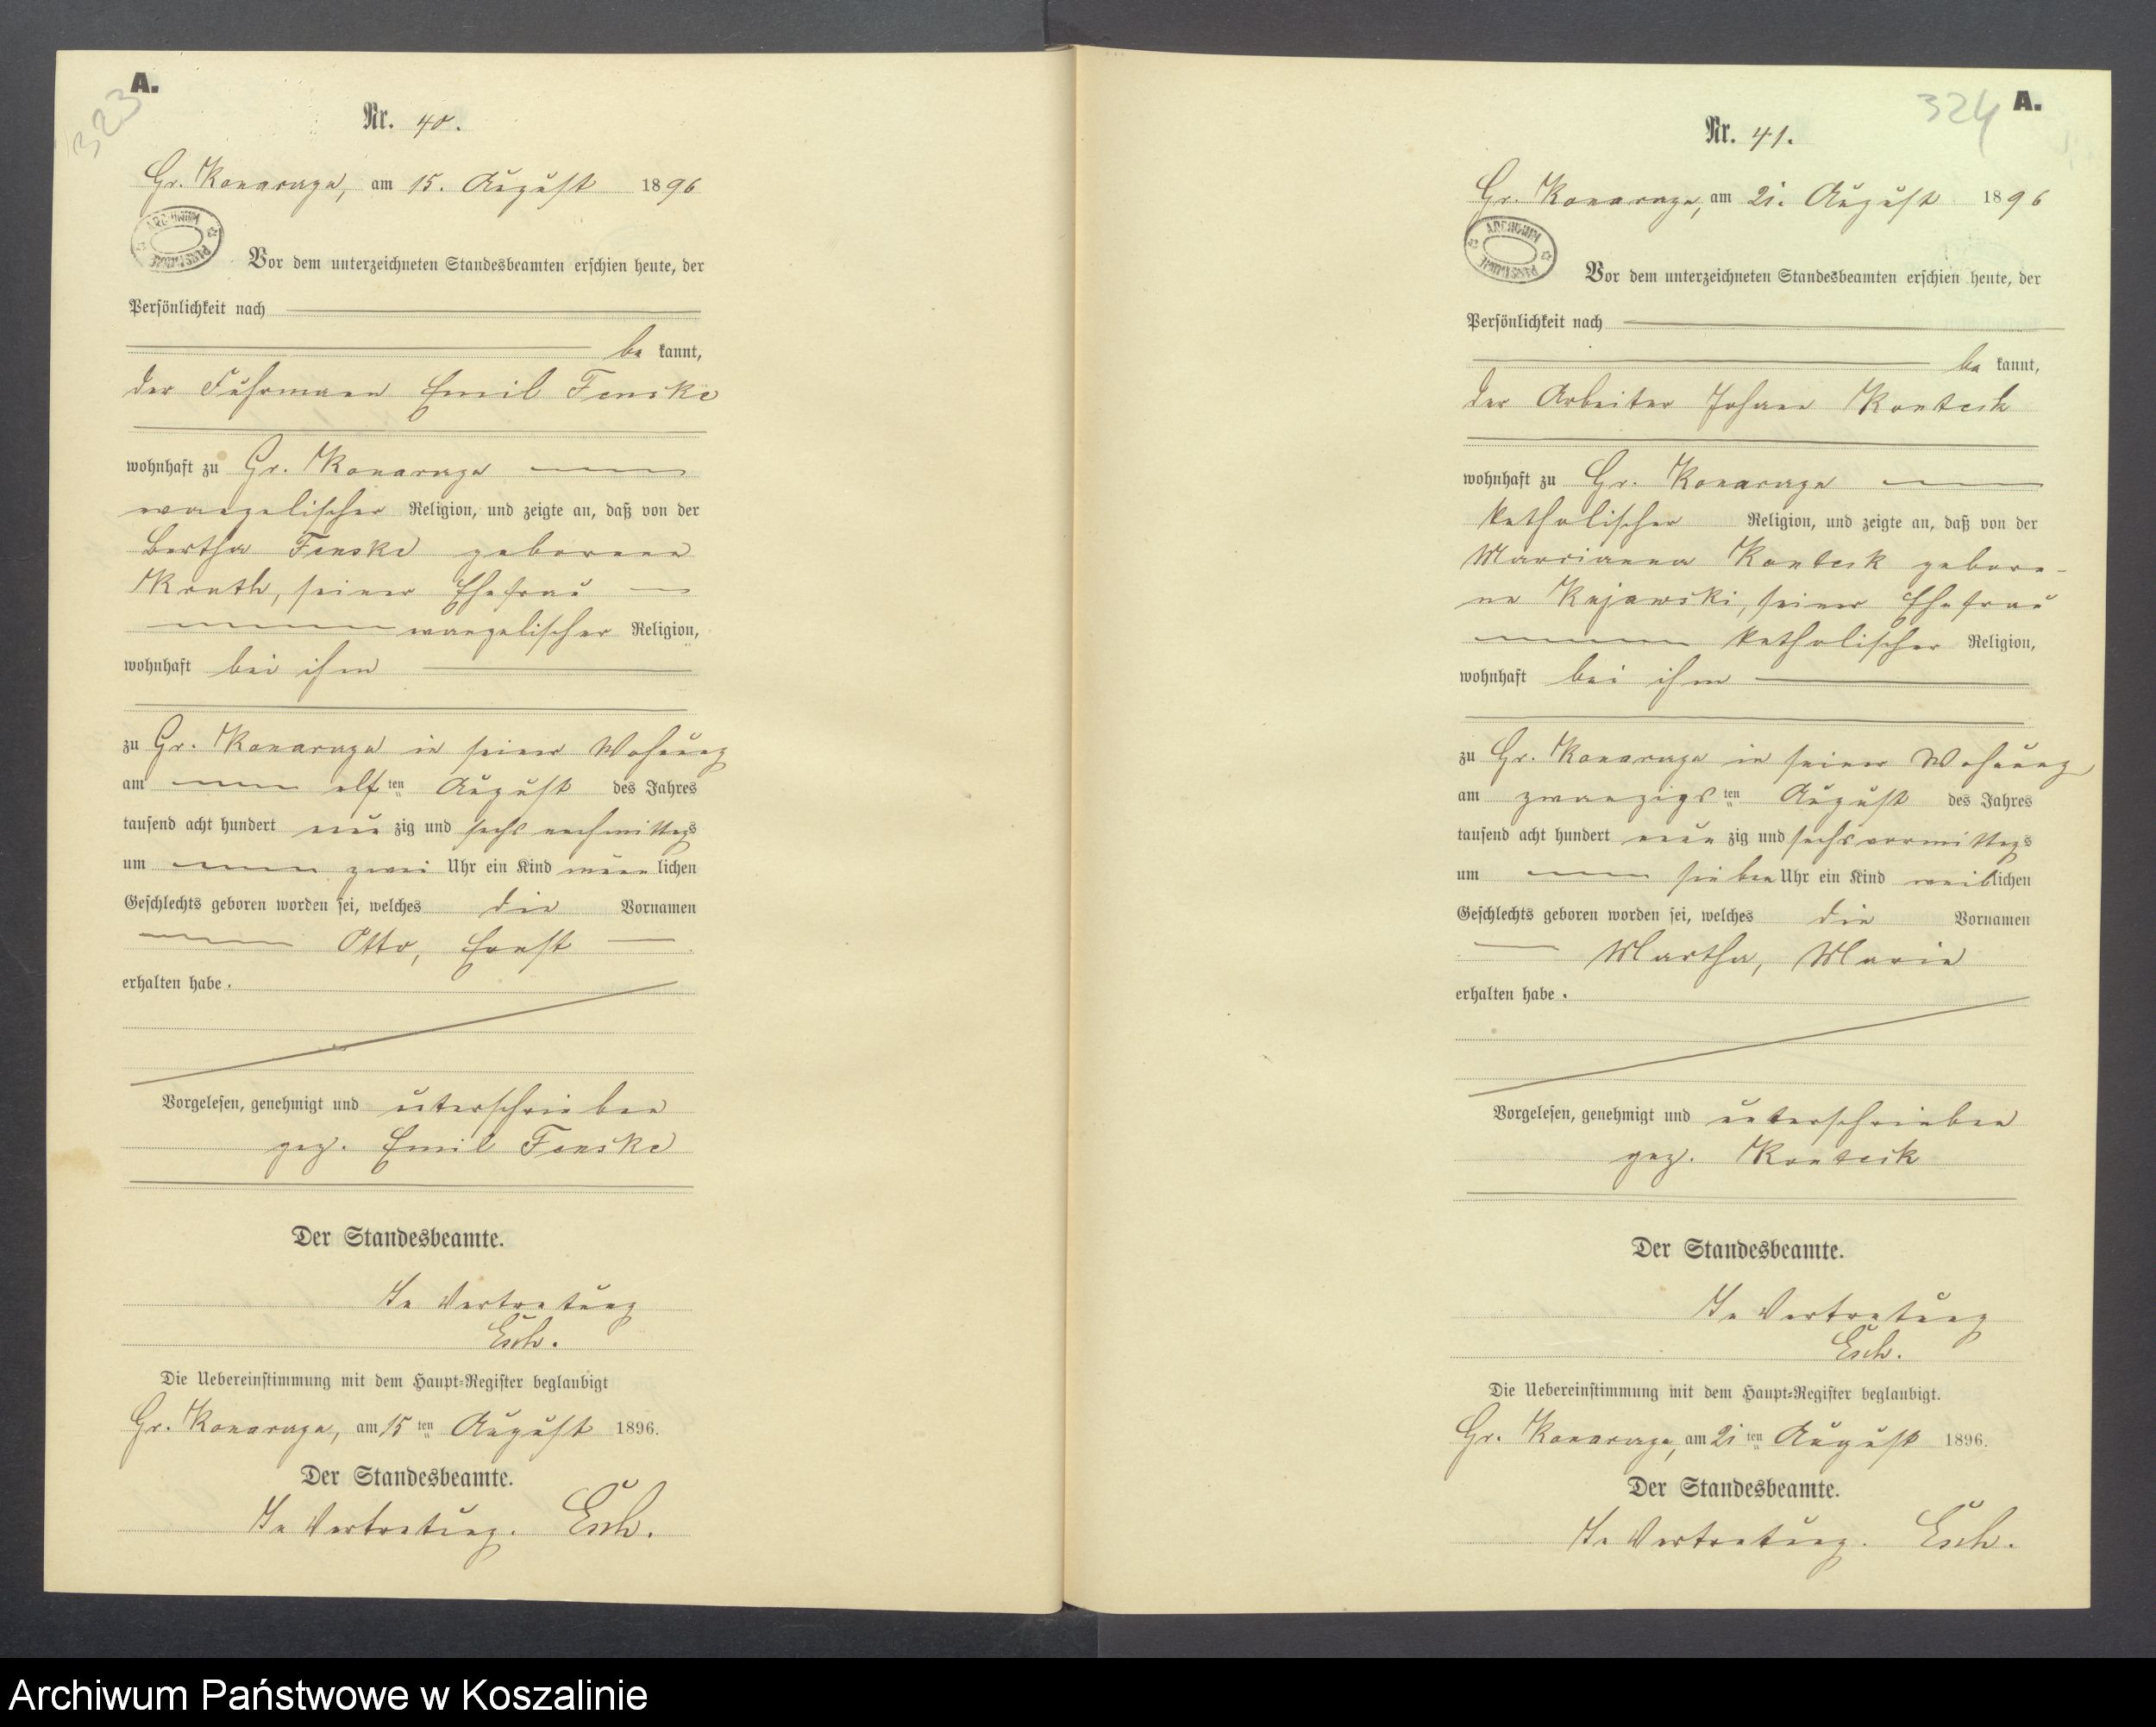 A.
323
Nr. 40.
Gr. Konarzyn, am 15. August 1896
ARCHIWUM PAŃSTWOWE
Vor dem unterzeichneten Standesbeamten erschien heute, der
Persönlichkeit nach
be kannt,
der Fuhrmann Emil Fenske
wohnhaft zu Gr. Konarzyn
evangelischer Religion, und zeigte an, daß von der
Bertha Fenske geborenen
Knuth, seiner Ehefrau
evangelischer Religion,
wohnhaft bei ihm
zu Gr. Konarzyn in seiner Wohnung
am elf ten August des Jahres
tausend acht hundert neun zig und sechs nachmittags
um zwei Uhr ein Kind männ lichen
Geschlechts geboren worden sei, welches die Vornamen
Otto, Ernst
erhalten habe.
Vorgelesen, genehmigt und unterschrieben
gez. Emil Fenske
Der Standesbeamte.
In Vertretung
Esch.
Die Uebereinstimmung mit dem Haupt-Register beglaubigt
Gr. Konarzyn, am 15 ten August 1896.
Der Standesbeamte.
In Vertretung. Esch.
324 A.
Nr. 41.
Gr. Konarzyn, am 21. August 1896
ARCHIWUM PAŃSTWOWE
Vor dem unterzeichneten Standesbeamten erschien heute, der
Persönlichkeit nach
be kannt,
der Arbeiter Johann
wohnhaft zu Gr. Konarzyn
katholischer Religion, und zeigte an, daß von der
Marianna gebore-
ne Kujawski, seiner Ehefrau
katholischer Religion,
wohnhaft bei ihm
zu Gr. Konarzyn in seiner Wohnung
am zwanzigs ten August des Jahres
tausend acht hundert neun zig und sechs vormittags
um sieben Uhr ein Kind weiblichen
Geschlechts geboren worden sei, welches die Vornamen
Martha, Marie
erhalten habe.
Vorgelesen, genehmigt und unterschrieben
gez.
Der Standesbeamte.
In Vertretung
Esch.
Die Uebereinstimmung mit dem Haupt-Register beglaubigt.
Gr. Konarzyn, am 21 ten August 1896.
Der Standesbeamte.
In Vertretung. Esch.
Archiwum Państwowe w Koszalinie